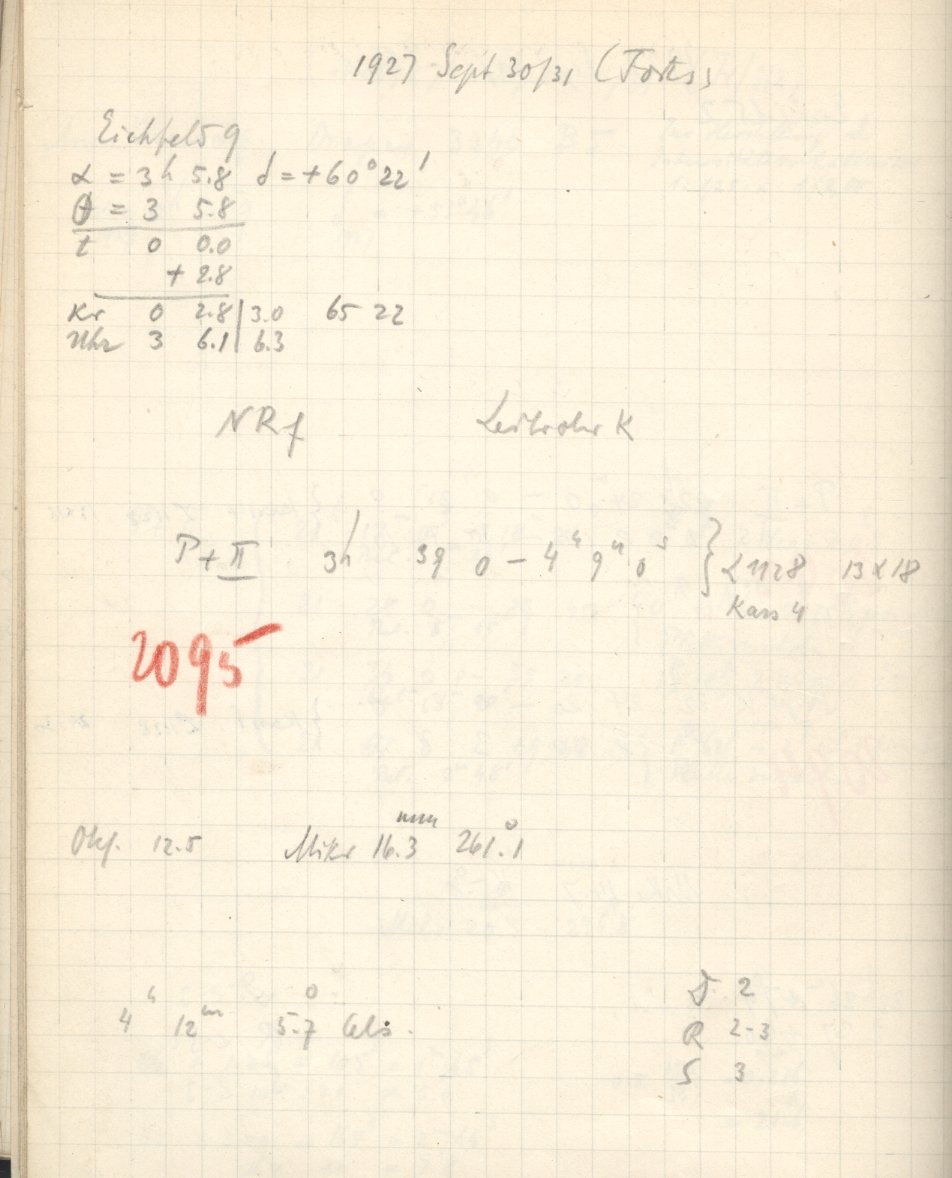 1927 Sept 30/31 (Forts)
Eichfeld 9
α = 3h 5.8 δ = +60° 22'
θ = 3 5.8
t 0 0.0
+ 2.8
Kr 0 2.8 | 3.0 65 22
Uhr 3 6.1 | 6.3
NRf Leitrohr K
P + II 3h 39 0 – 4h 9m 0s } L 1128 13x18
Kass 4
2095
Okf. 12.5 Mikr 16.3mm 261.°1
4h 12m 5.°7 Cels.
D 2
R 2-3
S 3